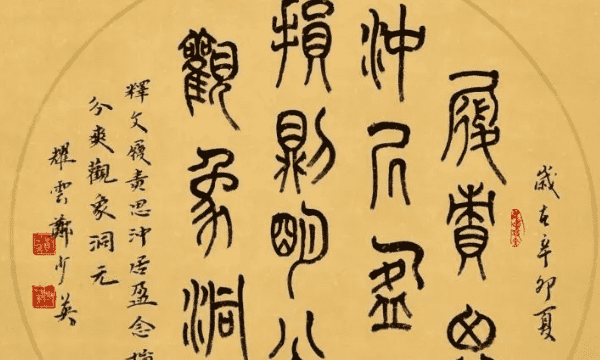 歲在辛卯夏
履貴思
沖居盈
損則明分
觀象洞
釋文履貴思沖居盈念損
分爽觀象洞元
耀雲鄭少英